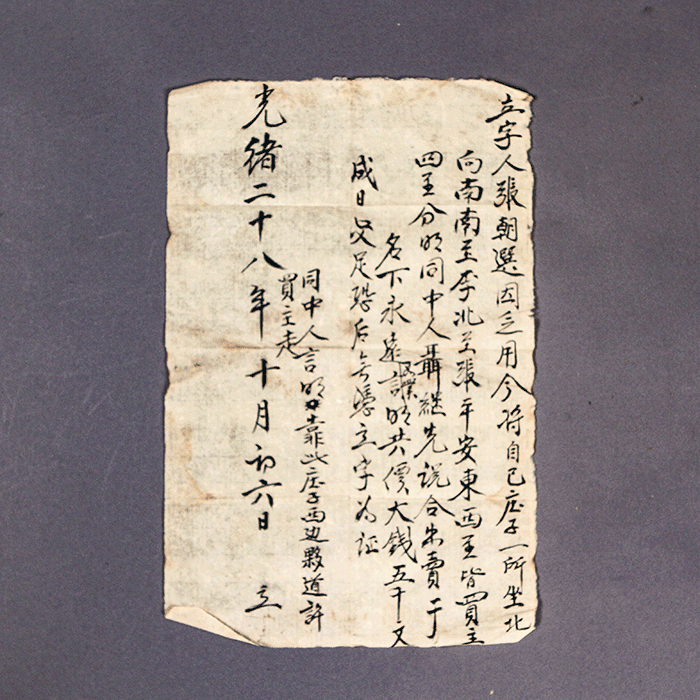 立字人張朝選因乏用今将自己庄子一所坐北
向南南至李北至張平安東西至皆買主
四至分明同中人聶継先说合出賣于
名下永遠為業言明共價大錢五千文
成日交足恐后無憑立字為证
同中人言明靠此庄子西边夥道許
買主走
光緒二十八年十月初六日 立